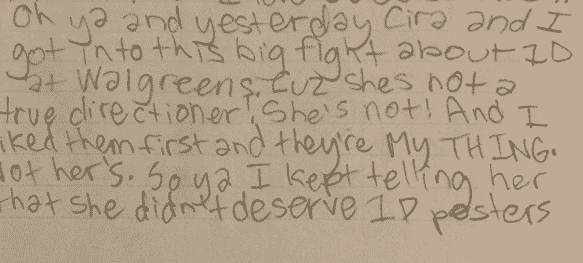 Oh ya and yesterday Cira and I
got into this big fight about 1D
at Walgreens. Cuz shes not a
true directioner! She's not! And I
iked them first and they're My THING.
lot her's. So ya I kept telling her
that she didn't deserve 1D posters